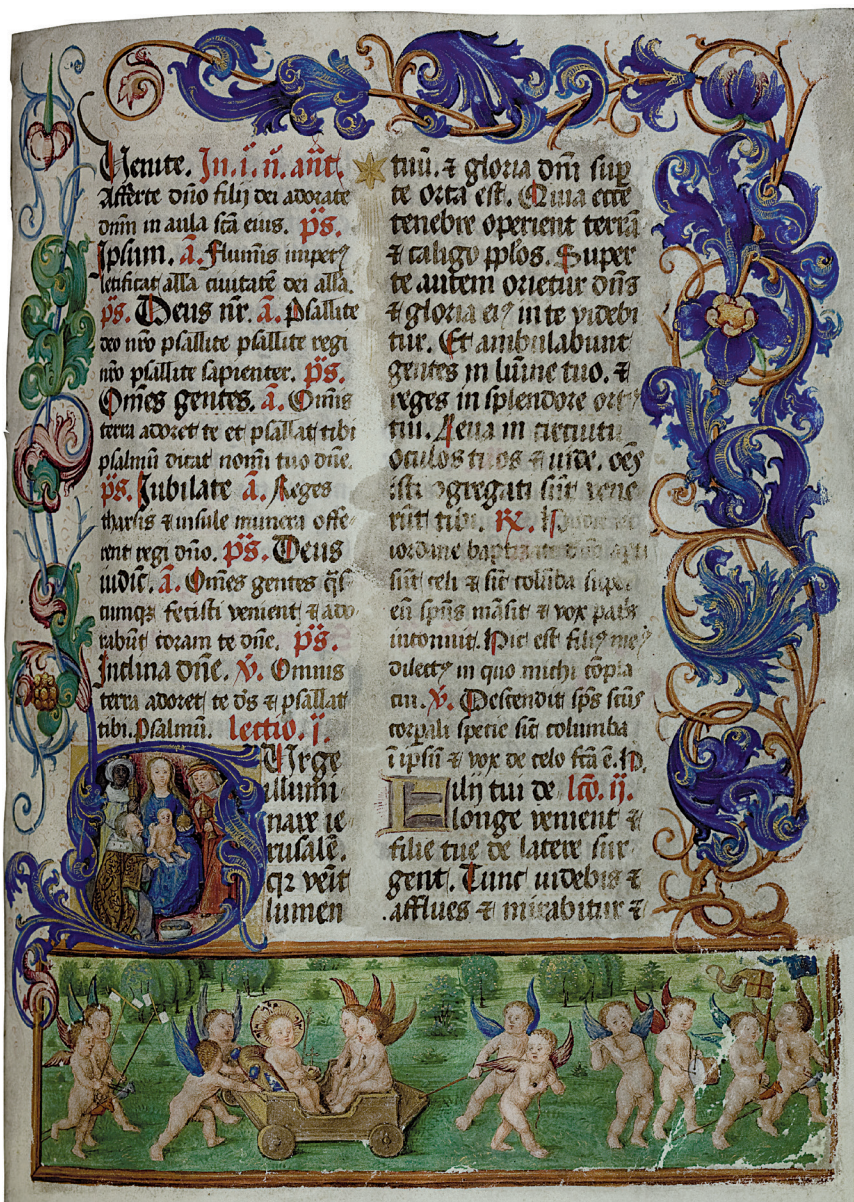 Venite. In. i. n̄. ant̄.
Afferte dn̄o filij dei adorate
dn̄m in aula sc̄a eius. p̄s.
Ipsum. ā. Flumīs impetꝰ
letificat alla ciuitatē dei alla.
p̄s. Deus nr̄. ā. Psallite
deo nr̄o psallite psallite regi
nr̄o psallite sapienter. p̄s.
Om̄es gentes. ā. Om̄is
terra adoret te et psallat tibi
psalmū dicat nomī tuo dn̄e.
p̄s. Jubilate ā. Reges
tharsis & insule munera offe
rent regi dn̄o. p̄s. Deus
iudic̄. ā. Om̄es gentes q̄s
cumqꝫ fecisti venient & ado
rabūt coram te dn̄e. p̄s.
Inclina dn̄e. v̄. Omnis
terra adoret te d̄s & psallat
tibi. Psalmū. lectio. j.
SUrge
illumi
nare ie
rusalē.
qꝛ venit
lumen
tuū. & gloria dn̄i sup̄
te orta est. Quia ecce
tenebre operient terrā
& caligo pp̄los. Super
te autem orietur dn̄s
& gloria eiꝰ in te videbi
tur. Et ambulabunt
gentes in lūine tuo. &
reges in splendore ortꝰ
tui. Leua in circuitu
oculos tuos & uide. oēs
isti ꝯgregati sūt vene
rūt tibi. R̄. Hodie in
iordane baptizato dn̄o apti
sūt celi & sic̄ colūba super
eū sp̄us māsit & vox pat̄s
intonuit. Hic est filiꝰ meꝰ
dilectꝰ in quo michi cōpla
cui. v̄. Descendit sp̄s sc̄us
corp̄ali specie sic̄ columba
ī ipsū & vox de celo fc̄a ē. H.
Filij tui de lc̄o. ij.
longe venient &
filie tue de latere sur
gent. Tunc uidebis &
afflues & mirabitur &